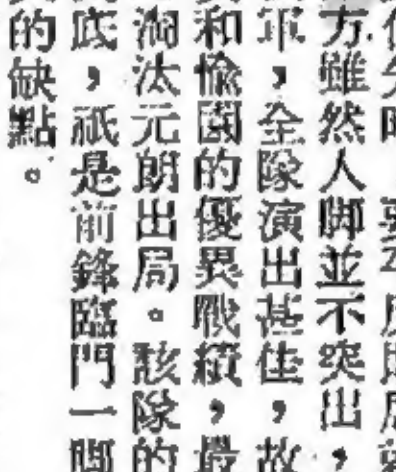 方雖然人脚並不突出，
軍，全隊演出甚佳，故
和愉園的優異戰績，最
淘汰元朗出局。該隊的
底，祇是前鋒臨門一脚
的缺點。